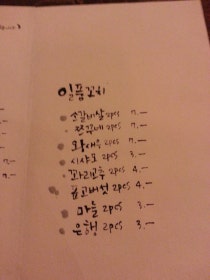 일품꼬치
소갈비살 2pcs 7.—
쭈꾸미 2pcs 7.—
왕새우 2pcs 7.—
시샤모 2pcs 3.—
꽈리고추 2pcs 4.—
표고버섯 2pcs 4.—
마늘 2pcs 3.—
은행 2pcs 3.—